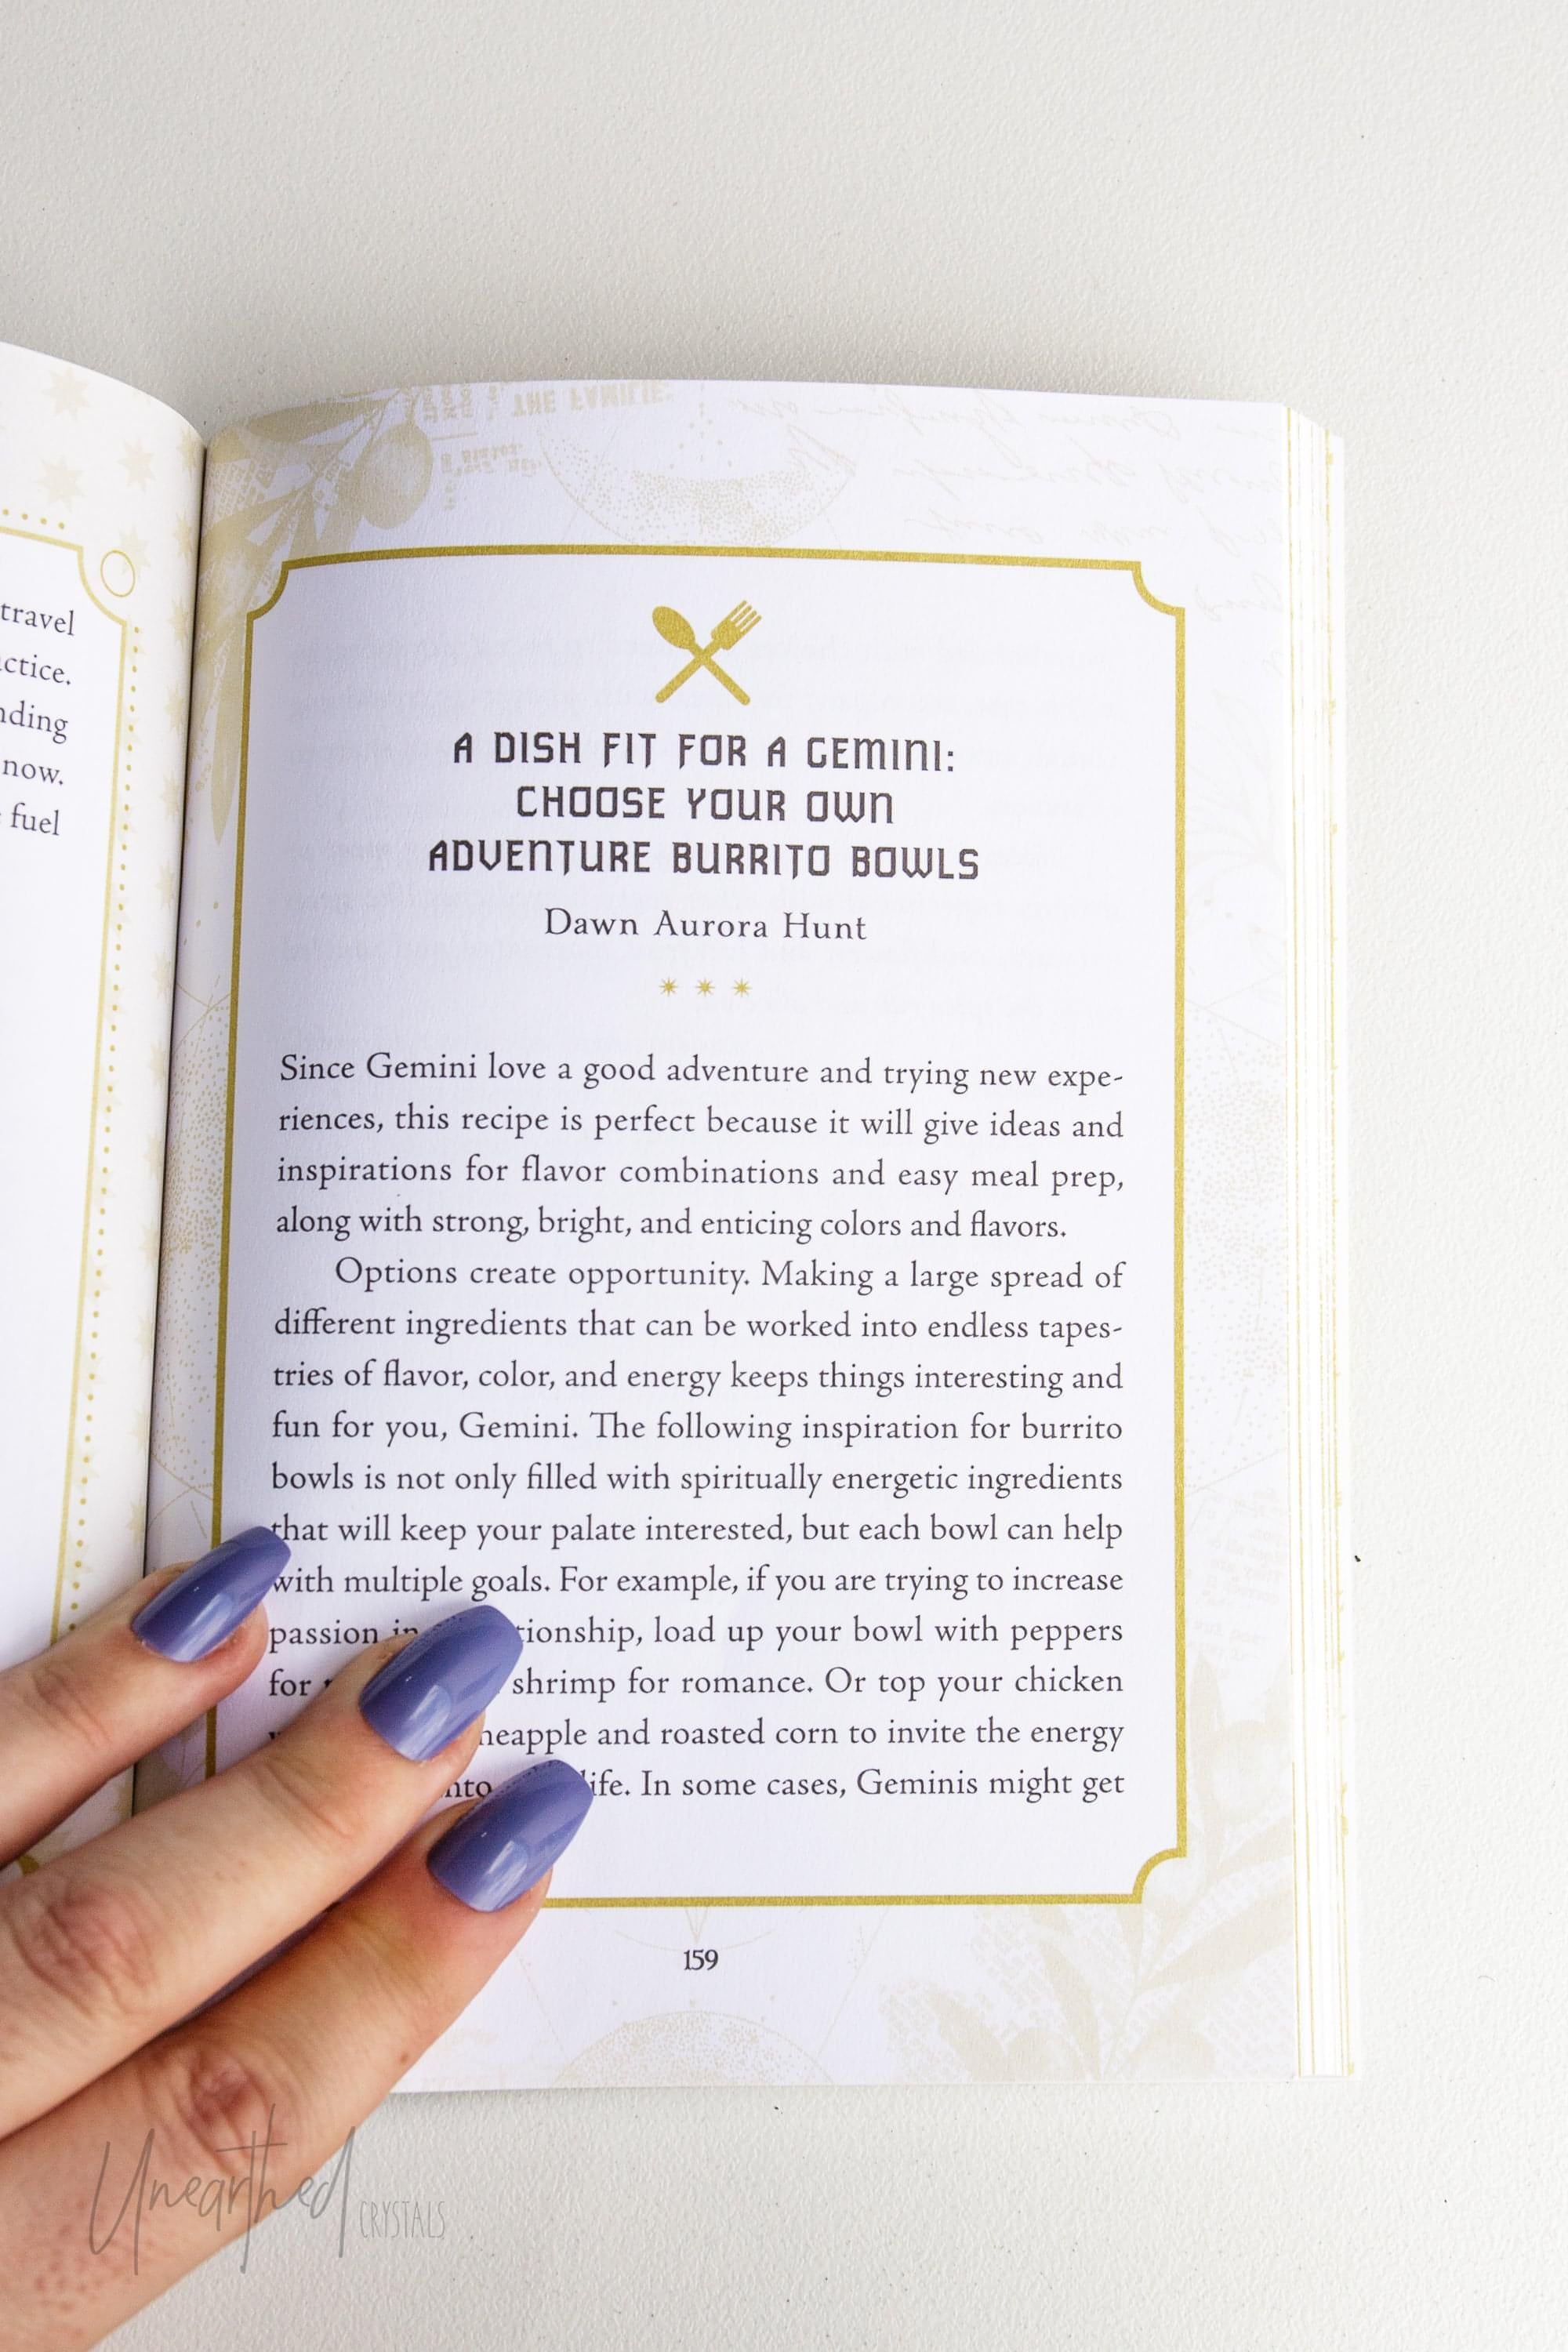 travel
ctice.
nding
now.
fuel
A DISH FIT FOR A GEMINI:
CHOOSE YOUR OWN
ADVENTURE BURRITO BOWLS
Dawn Aurora Hunt
Since Gemini love a good adventure and trying new expe-
riences, this recipe is perfect because it will give ideas and
inspirations for flavor combinations and easy meal prep,
along with strong, bright, and enticing colors and flavors.
Options create opportunity. Making a large spread of
different ingredients that can be worked into endless tapes-
tries of flavor, color, and energy keeps things interesting and
fun for you, Gemini. The following inspiration for burrito
bowls is not only filled with spiritually energetic ingredients
that will keep your palate interested, but each bowl can help
with multiple goals. For example, if you are trying to increase
passion in tionship, load up your bowl with peppers
for shrimp for romance. Or top your chicken
neapple and roasted corn to invite the energy
nto life. In some cases, Geminis might get
159
Unearthed CRYSTALS